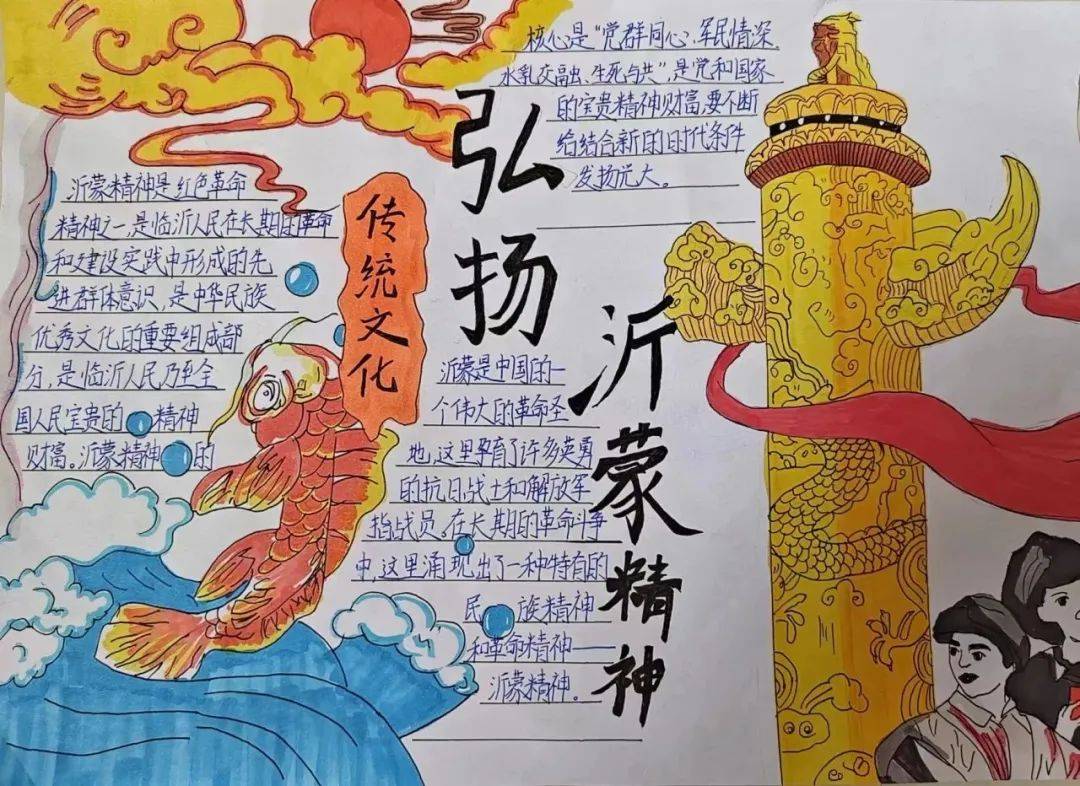 弘扬
沂蒙精神
传统文化
沂蒙精神是红色革命
精神之一,是临沂人民在长期的革命
和建设实践中形成的先
进群体意识,是中华民族
优秀文化的重要组成部
分,是临沂人民乃至全
国人民宝贵的精神
财富。沂蒙精神的
核心是“党群同心、军民情深、
水乳交融、生死与共”,是党和国家
的宝贵精神财富,要不断
给结合新的时代条件
发扬光大。
沂蒙是中国的一
个伟大的革命圣
地,这里孕育了许多英勇
的抗日战士和解放军
指战员。在长期的革命斗争
中,这里涌现出了一种特有的
民族精神
和革命精神——
沂蒙精神。